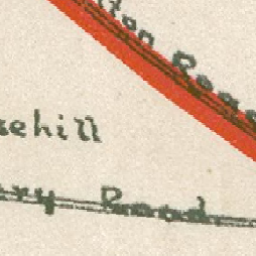 ton Road
sehill
ry Road